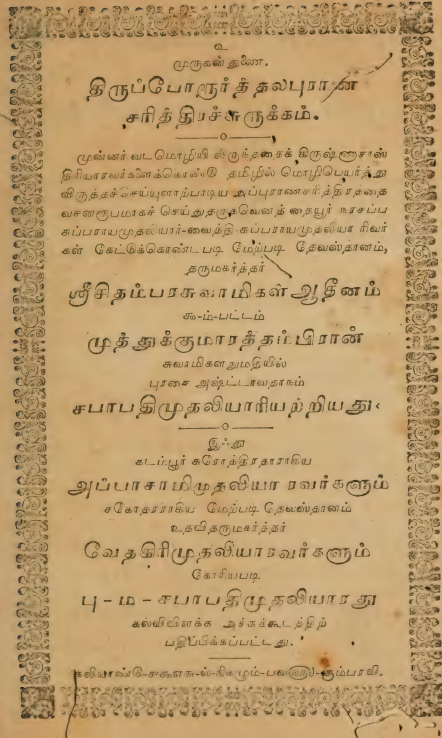 உ
முருகன் துணை.
திருப்போரூர்த் தலபுராண
சரித்திரச்சுருக்கம்.
முன்னர் வடமொழியி லிருந்ததைக் கிருஷ்ணசாஸ்
திரியாரவர்களைக்கொண்டு தமிழில் மொழிபெயர்த்து
விருத்தச்செய்யுளாற்பாடிய அப்புராணசரித்திரத்தை
வசனரூபமாகச் செய்துதருகவெனத் தையூர் நாசப்ப
சுப்பராயமுதலியார்-வைத்தி-சுப்பராயமுதலியா ரிவர்
கள் கேட்டுக்கொண்டபடி மேற்படி தேவஸ்தானம்,
தருமகர்த்தர்
ஸ்ரீசிதம்பரசுவாமிகள்ஆதீனம்
கூ-ம்-பட்டம்
முத்துக்குமாரத்தம்பிரான்
சுவாமிகளனுமதியில்
புரசை அஷ்ட்டாவதாநம்
சபாபதிமுதலியாரியற்றியது.
இஃது
கடம்பூர் சுரோத்திரதாராகிய
அப்பாசாமிமுதலியா ரவர்களும்
சகோதரராகிய மேற்படி தேவஸ்தானம்
உதவிதருமகர்த்தர்
வேதகிரிமுதலியாரவர்களும்
கோரியபடி
பு-ம-சபாபதிமுதலியாரது
கல்விவிளக்க அச்சுக்கூடத்திற்
பதிப்பிக்கப்பட்டது.
கும்பரவி.